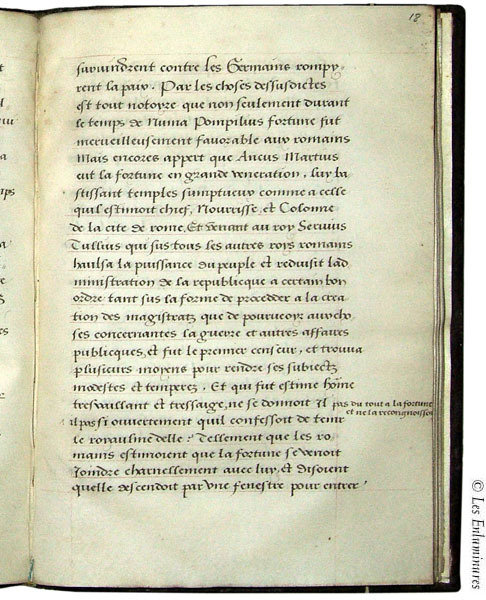 18
survindrent contre les Germains rompy-
rent la paix. Par les choses dessusdictes
est tout notoyre que non seulement durant
le temps de Numa Pompilius fortune fut
merveilleusement favorable aux romains
Mais encores appert que Ancus Martius
eut la fortune en grande veneration, luy ba
stissant temples sumptueux comme a celle
quil estimoit chief, Nourrisse, et Colonne
de la cite de rome. Et venant au roy Servius
Tullius qui sus tous les autres roys romains
haulsa la puissance du peuple et reduisit lad
ministration de la republicque a certain bon
ordre tant sus la forme de proceder a la crea
tion des magistratz que de pourveoyr aux cho
ses concernantes la guerre et autres affaires
publicques, et fut le premier censeur, et trouva
plusieurs moyens pour rendre ses subiectz
modestes et temperez. Et qui fut estime home
tresvaillant et tressaige, ne se donnoit il pas du tout a la fortune
et ne la recongnoissoit
il pas si ouvertement quil confessoit de tenir
le royaulme delle? Tellement que les ro
mains estimoient que la fortune se venoit
Joindre charnellement avec luy, et disoient
quelle descendoit par une fenestre pour entrer
© Les Enluminures